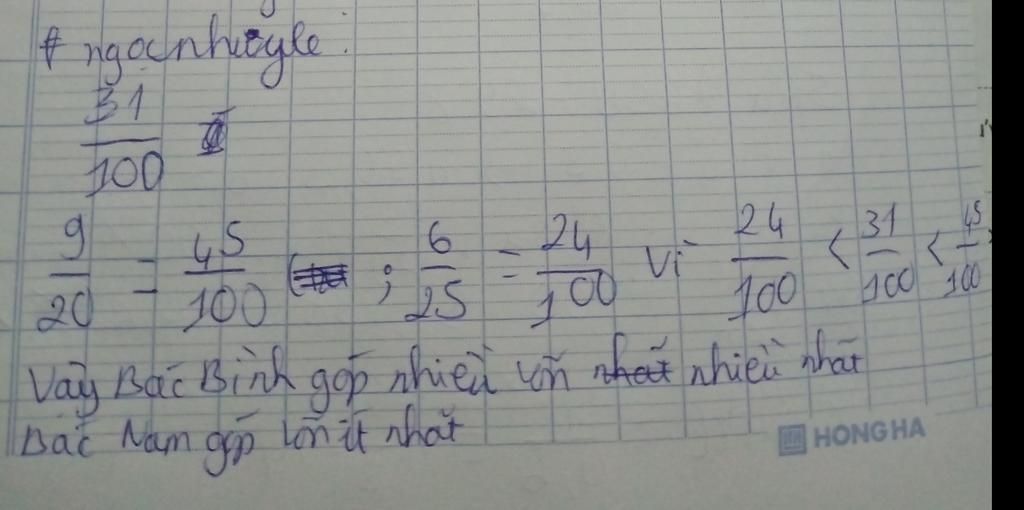 # ngọcnhuyle.
31/100
9/20 = 45/100 ; 6/25 = 24/100 Vì 24/100 < 31/100 < 45/100
Vậy Bác Bình góp nhiều vốn nhất nhiều nhất
Bác Nam góp vốn ít nhất
HONG HA